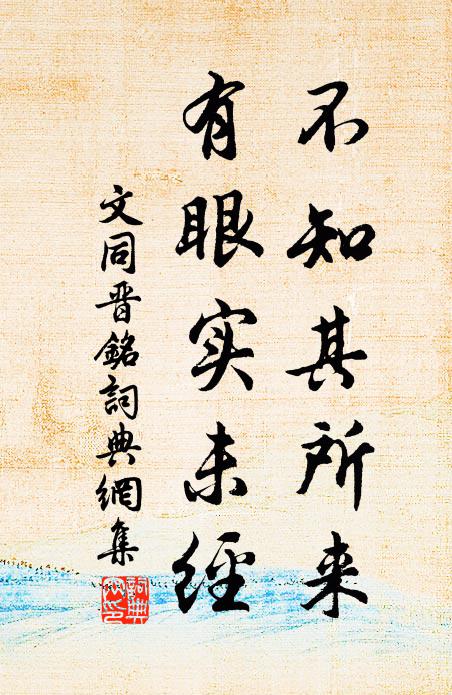 不知其所来
有眼实未經
文同晋銘詞典網集